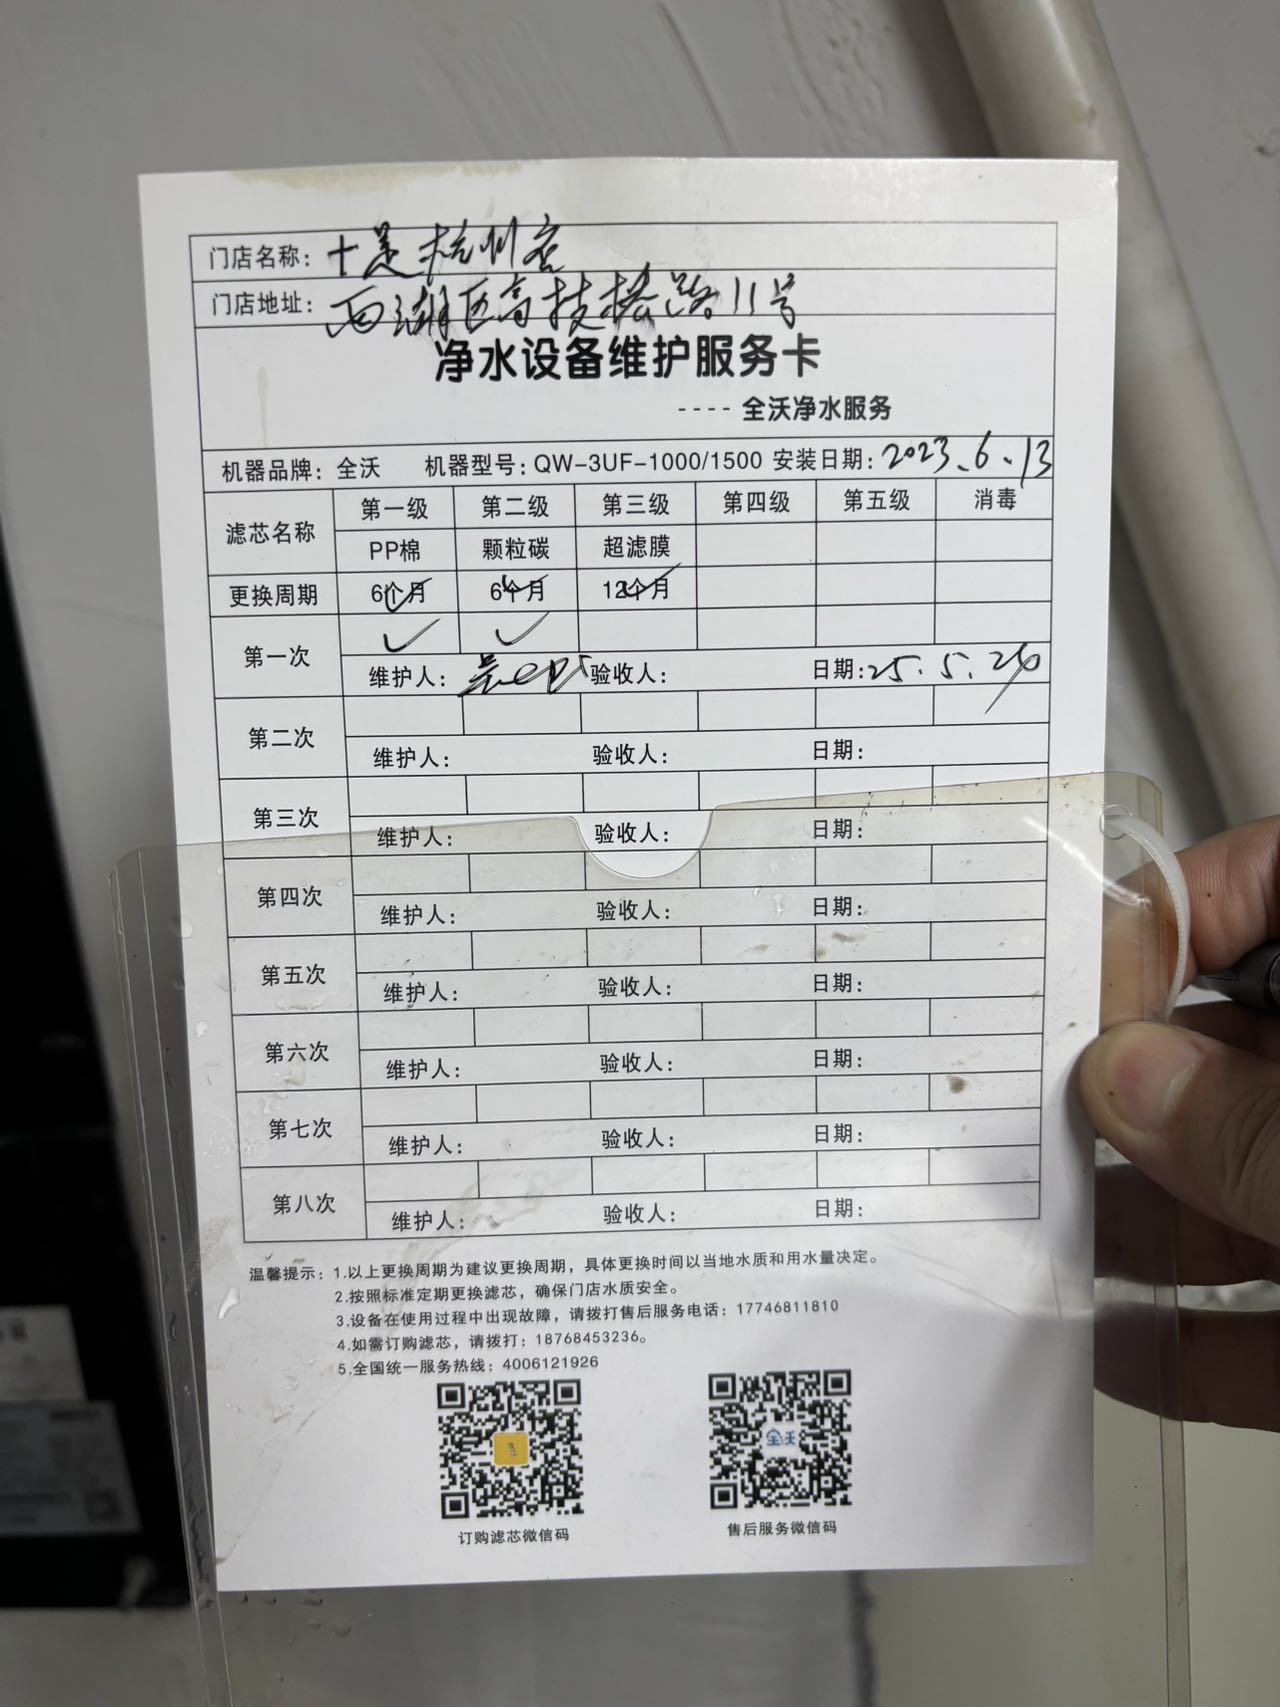 门店名称：十足杭州店
门店地址：西湖区高技桥路11号
净水设备维护服务卡
---- 全沃净水服务
机器品牌：全沃 机器型号：QW-3UF-1000/1500 安装日期：2023.6.13
滤芯名称 第一级 第二级 第三级 第四级 第五级 消毒
PP棉 颗粒碳 超滤膜
更换周期 6个月 6个月 12个月
第一次 ✓ ✓
维护人： 验收人： 日期:25.5.26
第二次
维护人： 验收人： 日期：
第三次
维护人： 验收人： 日期：
第四次
维护人： 验收人： 日期：
第五次
维护人： 验收人： 日期：
第六次
维护人： 验收人： 日期：
第七次
维护人： 验收人： 日期：
第八次
维护人： 验收人： 日期：
温馨提示：1.以上更换周期为建议更换周期，具体更换时间以当地水质和用水量决定。
2.按照标准定期更换滤芯，确保门店水质安全。
3.设备在使用过程中出现故障，请拨打售后服务电话：17746811810
4.如需订购滤芯，请拨打：18768453236。
5.全国统一服务热线：4006121926
全沃
订购滤芯微信码 售后服务微信码